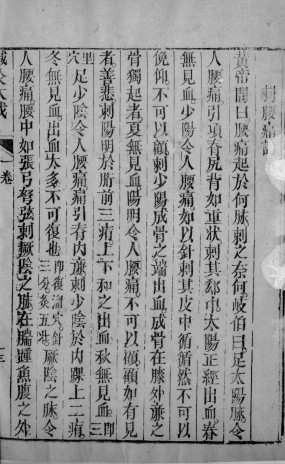 刺腰痛論
黃帝問曰腰痛起於何脉刺之奈何岐伯曰足太陽脉令
人腰痛引項脊尻背如重狀刺其郄中太陽正經出血春
無見血少陽令人腰痛如以針刺其皮中循循然不可以
俛仰不可以顧刺少陽成骨之端出血成骨在膝外亷之
骨獨起者夏無見血陽明令人腰痛不可以顧顧如有見
者善悲刺陽明於胻前三痏上下和之出血秋無見血即三里
穴足少陰令人腰痛痛引脊內亷刺少陰於內踝上二痏
冬無見血出血太多不可復也即復溜穴針三分灸五壯厥陰之脉令
人腰痛腰中如張弓弩弦刺厥陰之脉在腨踵魚腹之外
鍼灸大成
一卷